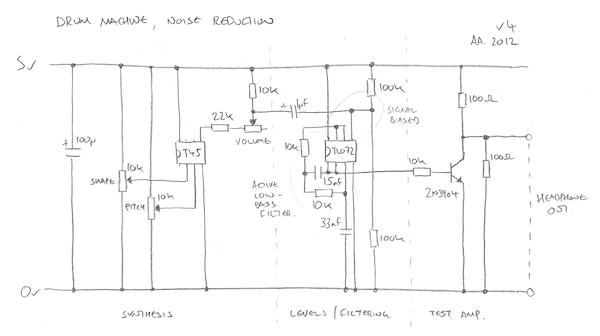 DRUM MACHINE, NOISE REDUCTION
V4.
AA. 2012
5v
10k
100k
100Ω
+ 1µF
SIGNAL BIASED
22k
VOLUME
+
100µ
T45
TL072
10k
10k
10k
SHAPE
10k
PITCH
ACTIVE
LOW-
PASS
FILTER.
15nF
10k
33nF
100k
2N3904
100Ω
HEADPHONE
OUT.
0v
SYNTHESIS
LEVELS / FILTERING
TEST AMP.